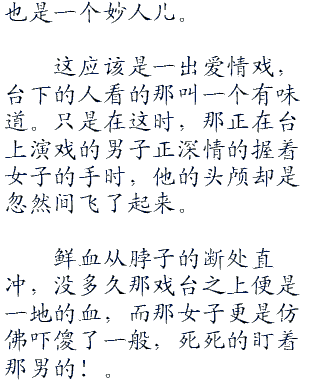 也是一个妙人儿。
这应该是一出爱情戏，
台下的人看的那叫一个有味
道。只是在这时，那正在台
上演戏的男子正深情的握着
女子的手时，他的头颅却是
忽然间飞了起来。
鲜血从脖子的断处直
冲，没多久那戏台之上便是
一地的血，而那女子更是仿
佛吓傻了一般，死死的盯着
那男的！。